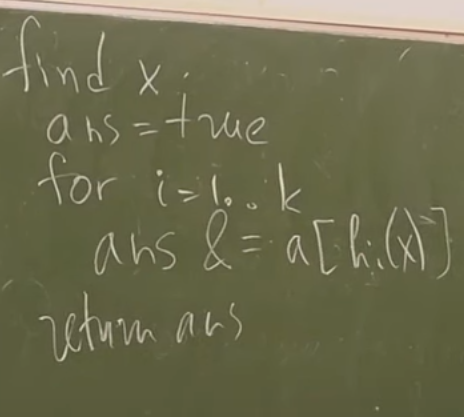 find x:
ans = true
for i=1..k
ans &= a[hi(x)]
return ans